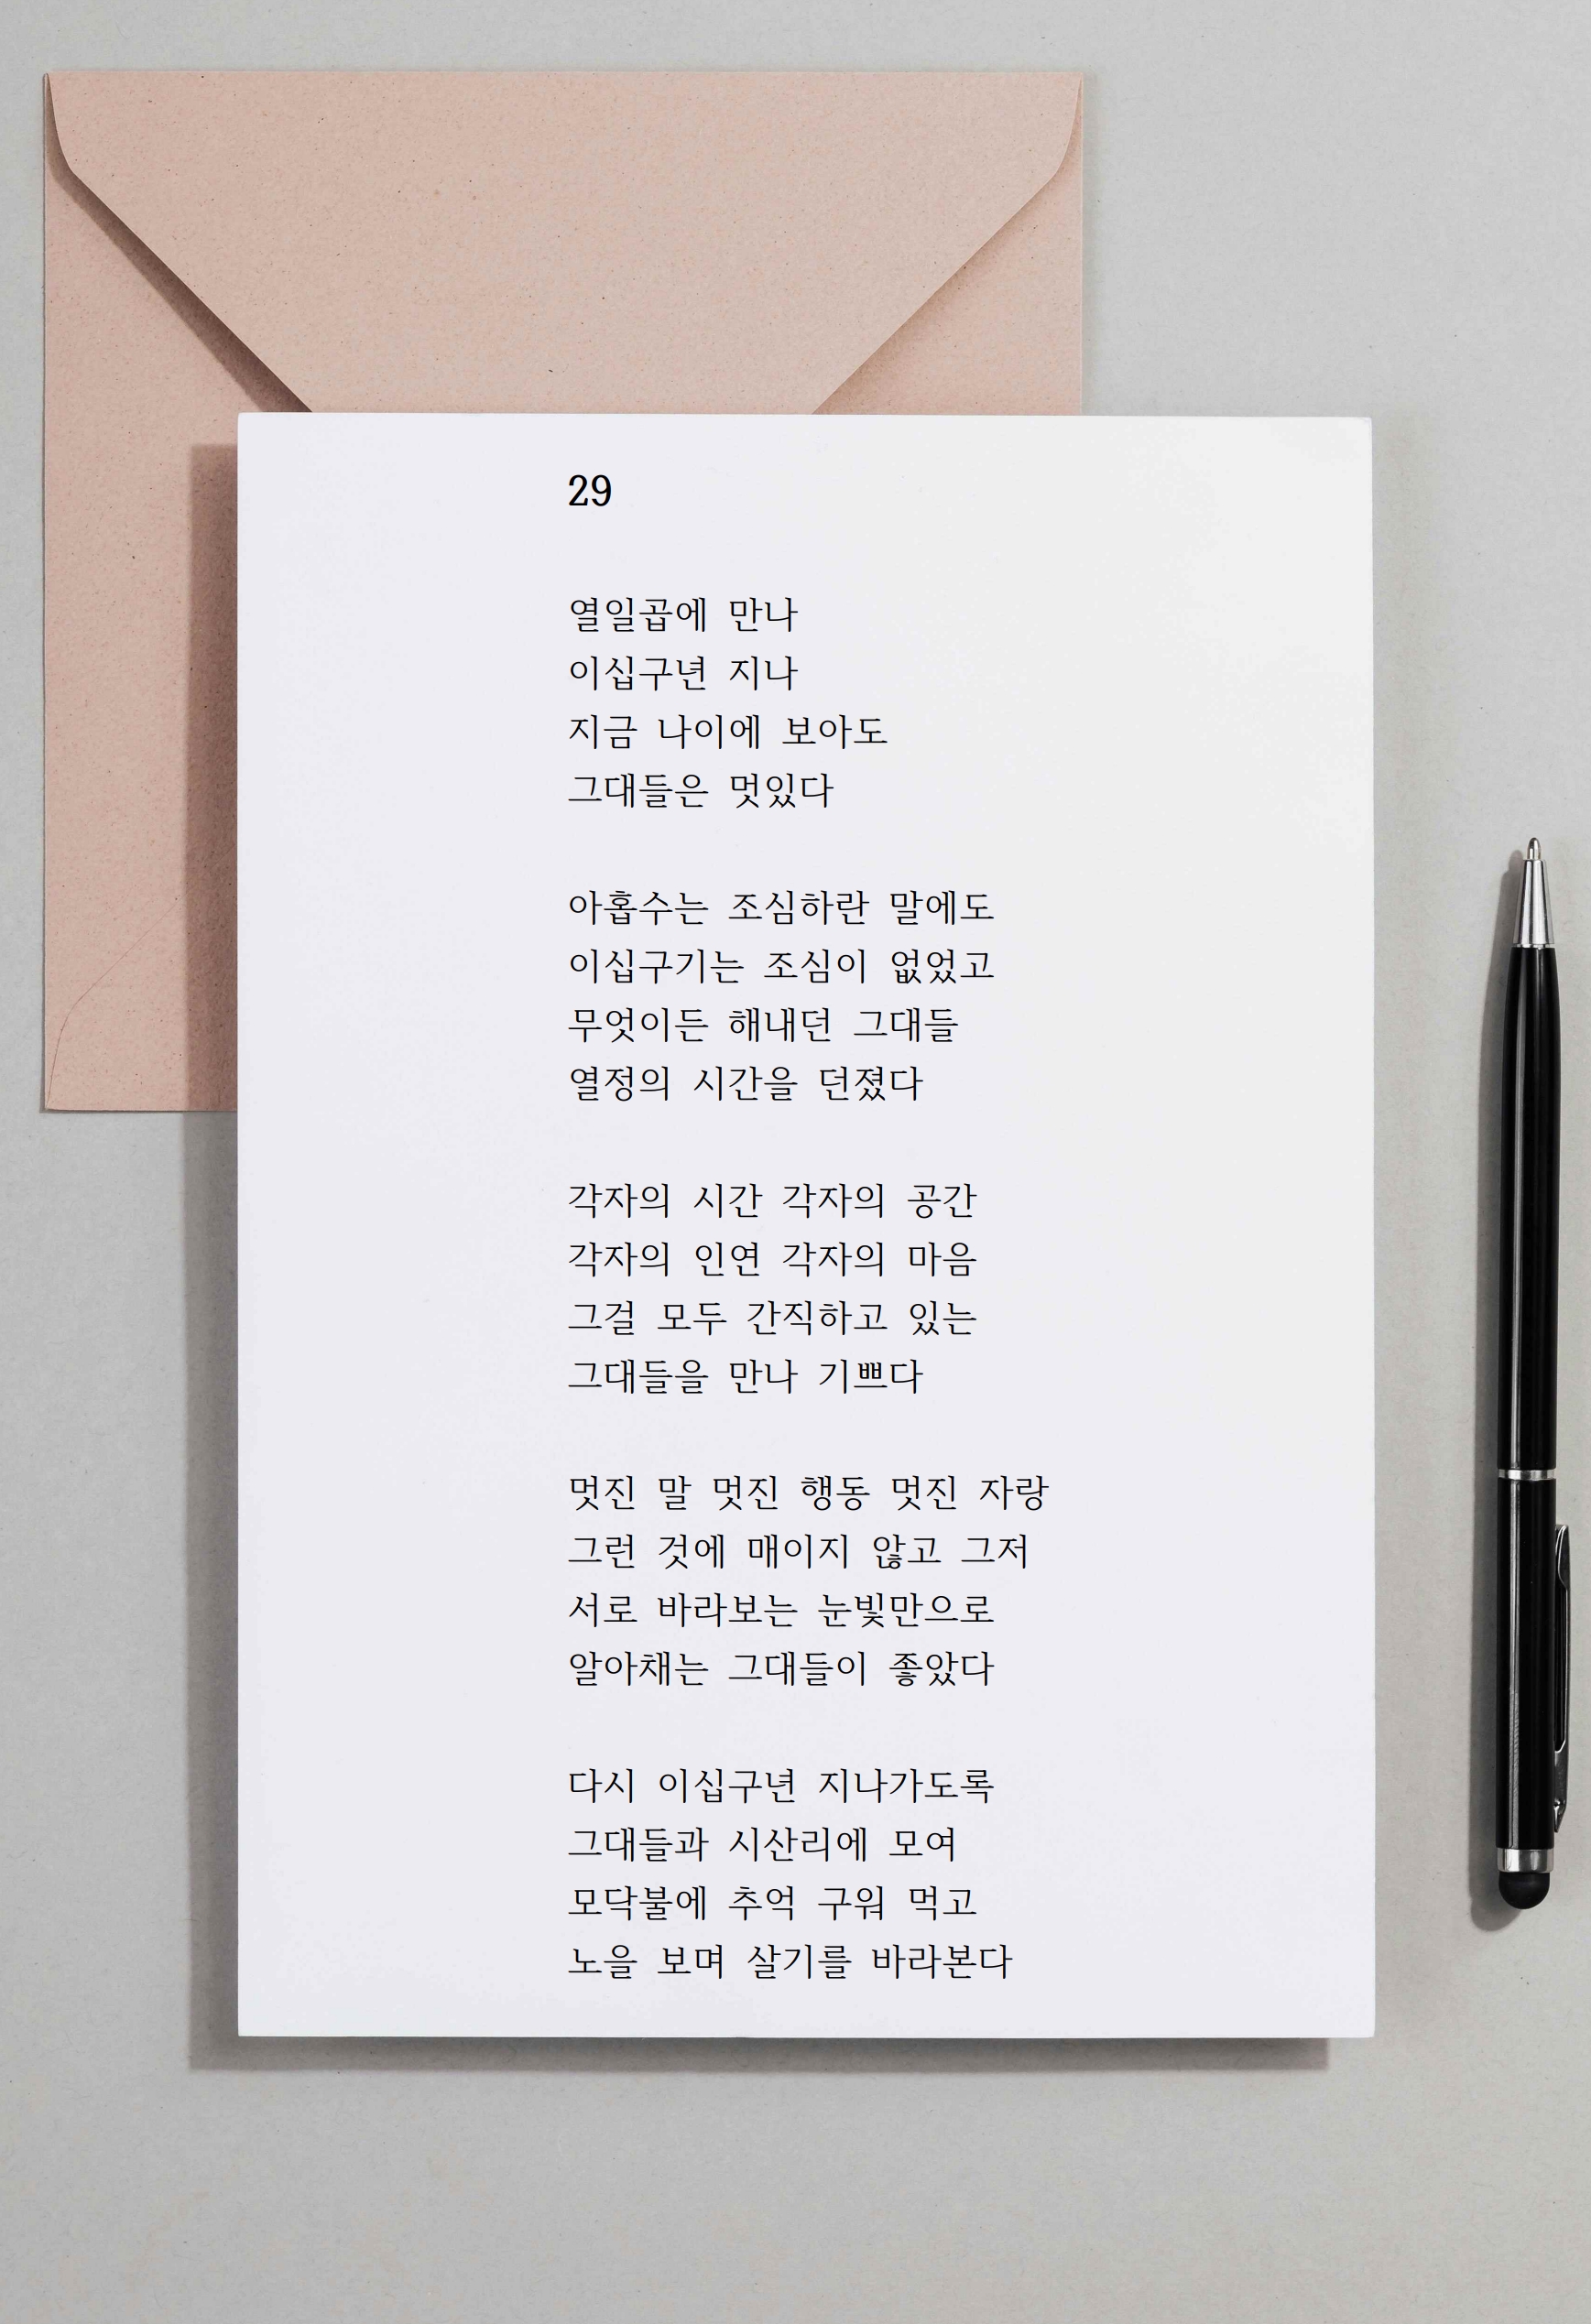 29
열일곱에 만나
이십구년 지나
지금 나이에 보아도
그대들은 멋있다
아홉수는 조심하란 말에도
이십구기는 조심이 없었고
무엇이든 해내던 그대들
열정의 시간을 던졌다
각자의 시간 각자의 공간
각자의 인연 각자의 마음
그걸 모두 간직하고 있는
그대들을 만나 기쁘다
멋진 말 멋진 행동 멋진 자랑
그런 것에 매이지 않고 그저
서로 바라보는 눈빛만으로
알아채는 그대들이 좋았다
다시 이십구년 지나가도록
그대들과 시산리에 모여
모닥불에 추억 구워 먹고
노을 보며 살기를 바라본다